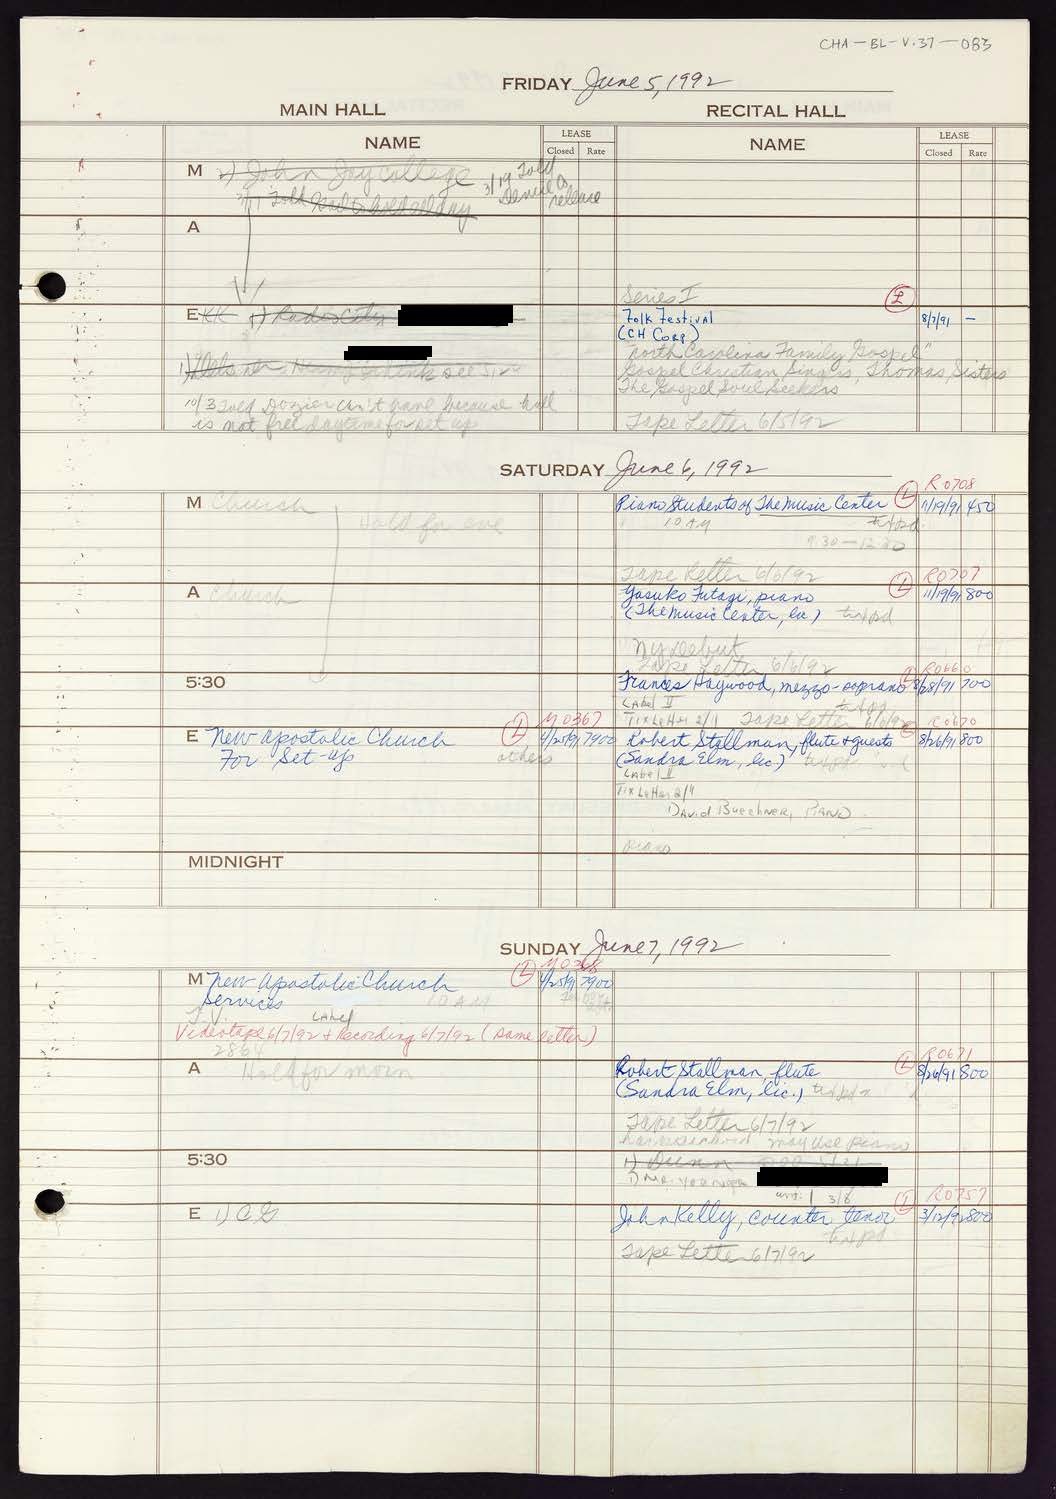 CHA-BL-V.37-083
FRIDAY June 5, 1992
MAIN HALL
RECITAL HALL
NAME
LEASE
Closed Rate
NAME
LEASE
Closed Rate
M 2) John Jay College
3/19 Told
Denise to
release
A
E KK 1) Radio City
10/3 Told Dozier can't have because hall
is not free daytime for set up
Series I
L
Folk Festival 8/7/91 —
(CH Corp)
"North Carolina Family Gospel"
Gospel Christian Singers, Thomas Sisters
The Gospel Soul Seekers
Tape Letter 6/5/92
SATURDAY June 6, 1992
M Church
Hold for eve
R0708
Piano Students of The Music Center L 11/19/91 450
10 AM
9:30-12:30
Tape Letter 6/6/92
A Church
L R0707
Yasuko Futagi, piano 11/19/91 800
(The Music Center, lic.)
NY Debut
Tape Letter 6/6/92
5:30
R0660
Frances Haywood, mezzo-soprano 8/28/91 700
Label II
Tix Letter 2/1 Tape Letter 6/6/92
E New Apostolic Church L M0367 4/25/91 7900
For Set-up
others
R0670
Robert Stallman, flute & guests 8/26/91 800
(Sandra Elm, lic.)
Label II
Tix Letter 2/4
David Buechner, Piano
piano
MIDNIGHT
SUNDAY June 7, 1992
M New Apostolic Church L M0368 4/25/91 7900
Services 10 AM
T.V. Label
Videotape 6/7/92 & Recording 6/7/92 (same letter)
2864
A Hold for morn
L R0671
Robert Stallman, flute 8/26/91 800
(Sandra Elm, lic.)
Tape Letter 6/7/92
harpsichord may use piano
5:30
1) Dunn
3/6
E 1) CG
L R0757
John Kelly, counter tenor 3/12/92 800
Tape Letter 6/7/92